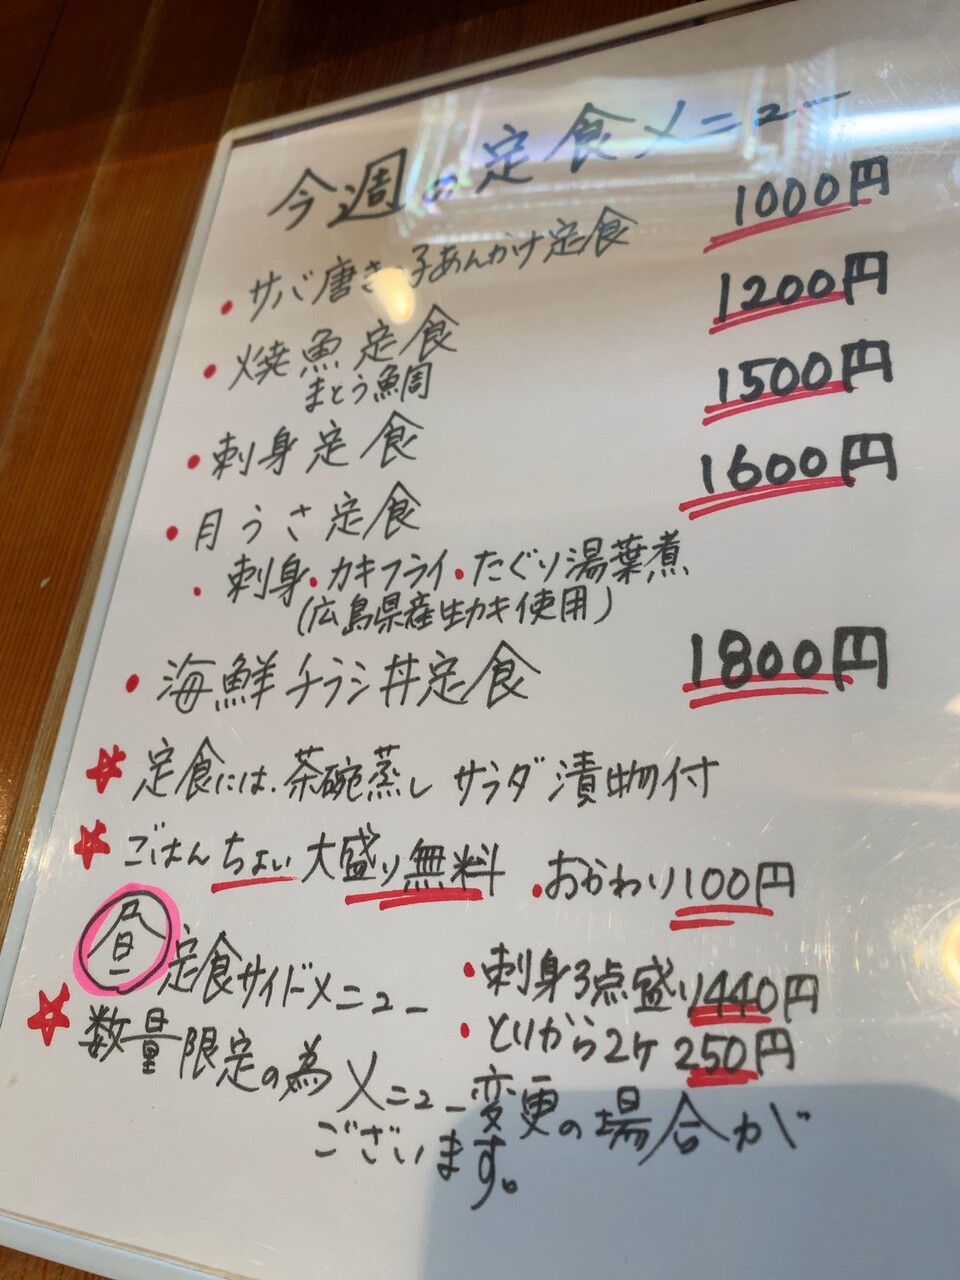 今週の定食メニュー
・サバ唐き 子あんかけ定食 1000円
・焼魚定食 1200円
まとう鯛
・刺身定食 1500円
・月うさ定食 1600円
・刺身・カキフライ・たぐり湯葉煮
(広島県産生カキ使用)
・海鮮チラシ丼定食 1800円
★定食には、茶碗蒸し サラダ 漬物付
★ごはんちょい大盛り無料 ・おかわり100円
昼定食サイドメニュー ・刺身3点盛り440円
・とりから2ケ 250円
☆数量限定の為メニュー変更の場合が
ございます。